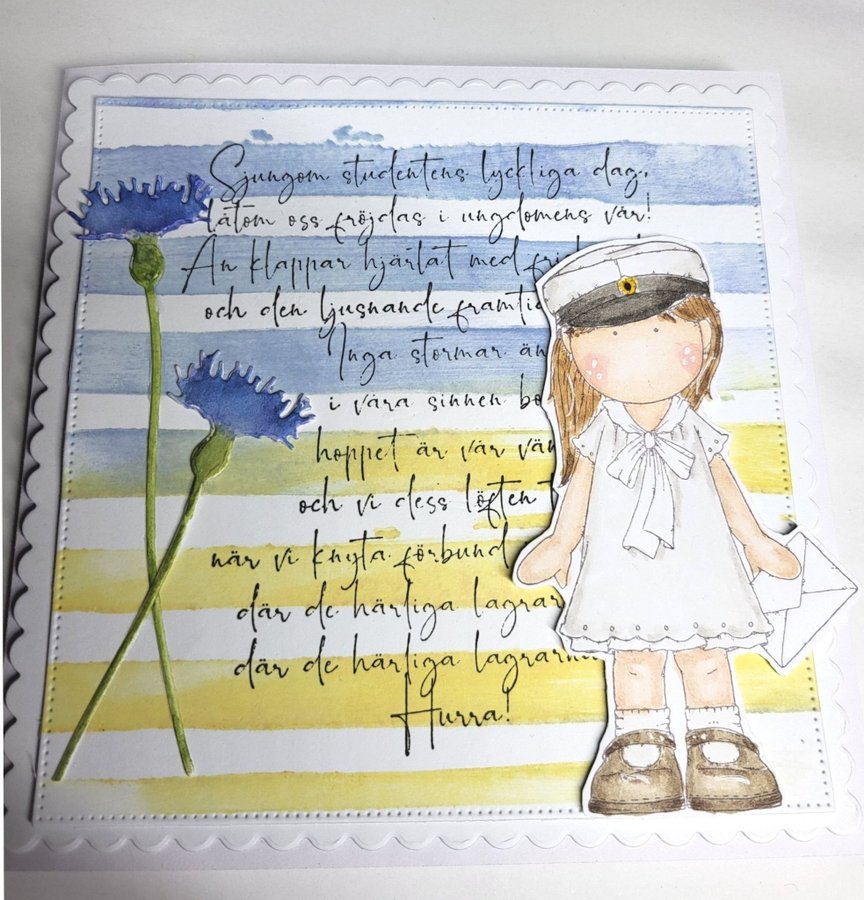 Sjungom studentens lyckliga dag,
låtom oss fröjdas i ungdomens vår!
Än klappar hjärtat med
och den ljusnande
Inga stormar än
i våra sinnen bo
hoppet är vår vän
och vi dess löften
när vi knyta förbund
där de härliga lagrar
där de härliga lagrarna
Hurra!